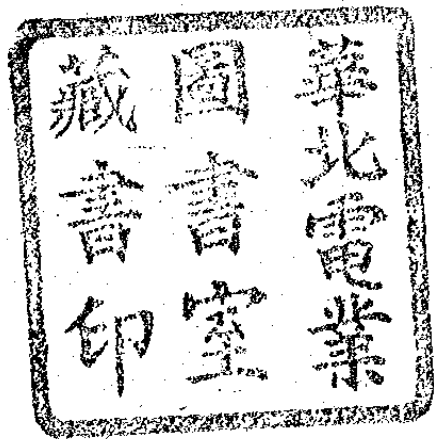 華北電業
圖書室
藏書印